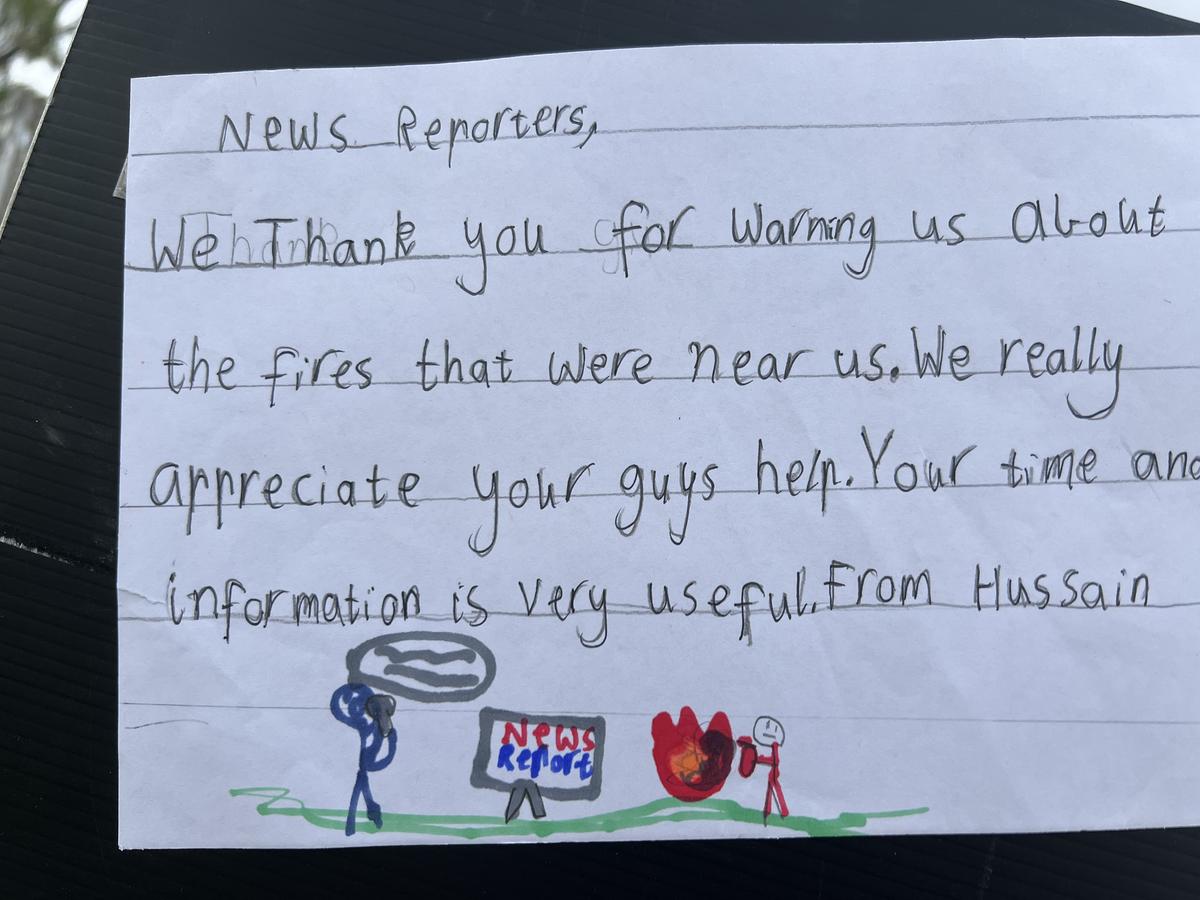 News Reporters,
We Thank you for Warning us about
the fires that were near us. We really
appreciate your guys help. Your time and
information is very useful. From Hussain
News
Report